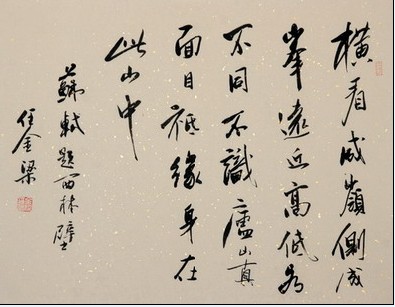 橫看成嶺側成
峯遠近高低各
不同不識廬山真
面目祗緣身在
此山中
蘇軾題西林壁
任金梁